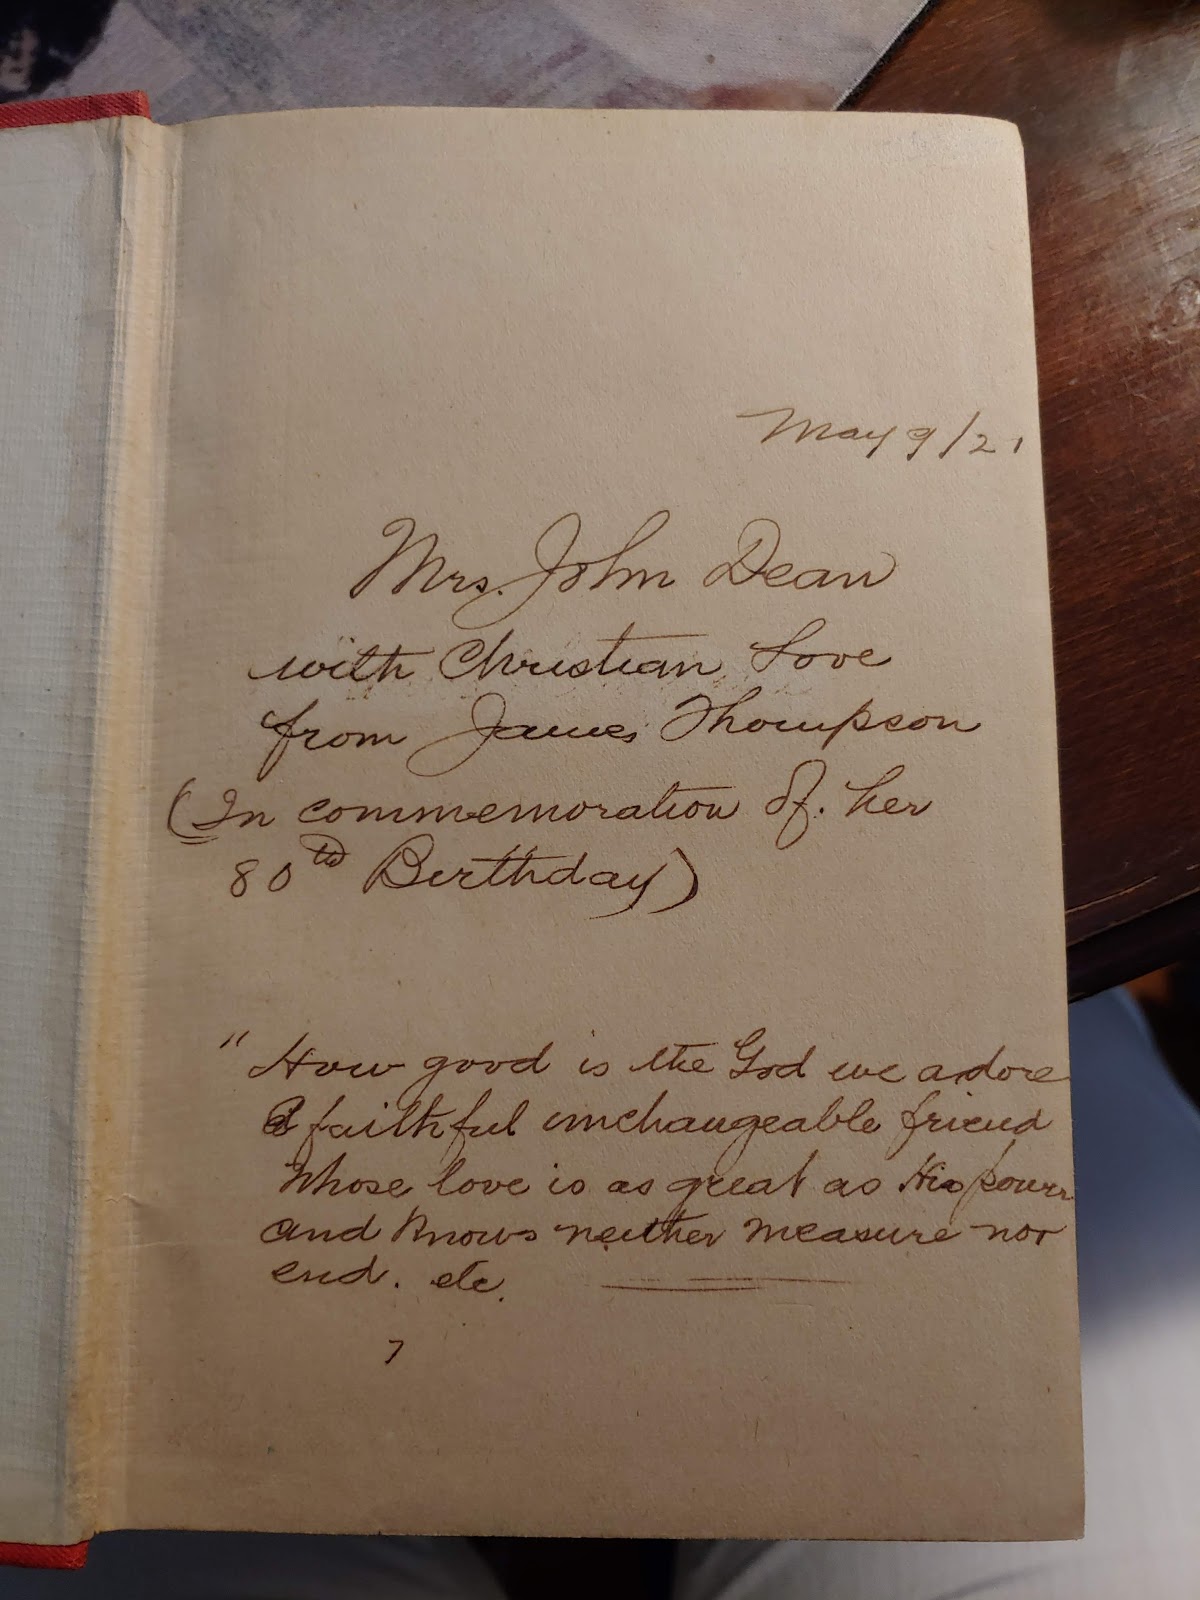 May 9/21
Mrs. John Dean
with Christian Love
from James Thompson
(In commemoration of. her
80th Birthday)
" How good is the God we adore
A faithful unchangeable friend
Whose love is as great as His power
and knows neither measure nor
end. etc.